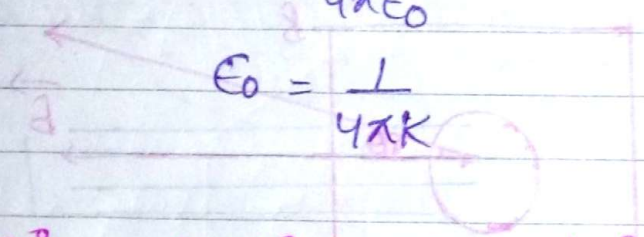 4πϵ0
ϵ0 = 1/4πK